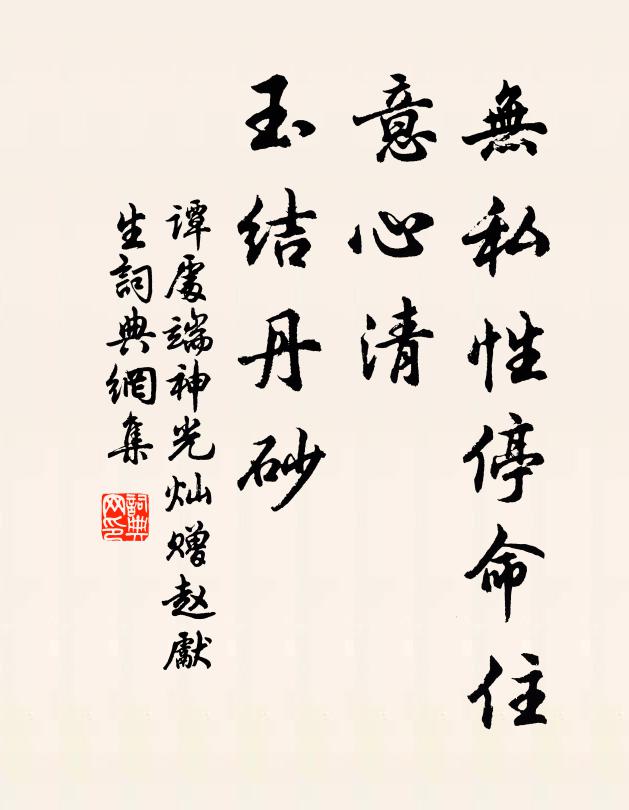 無私性停命住
意心清
玉结丹砂
譚處端神光灿赠赵獻
生詞典網集
詞典網印